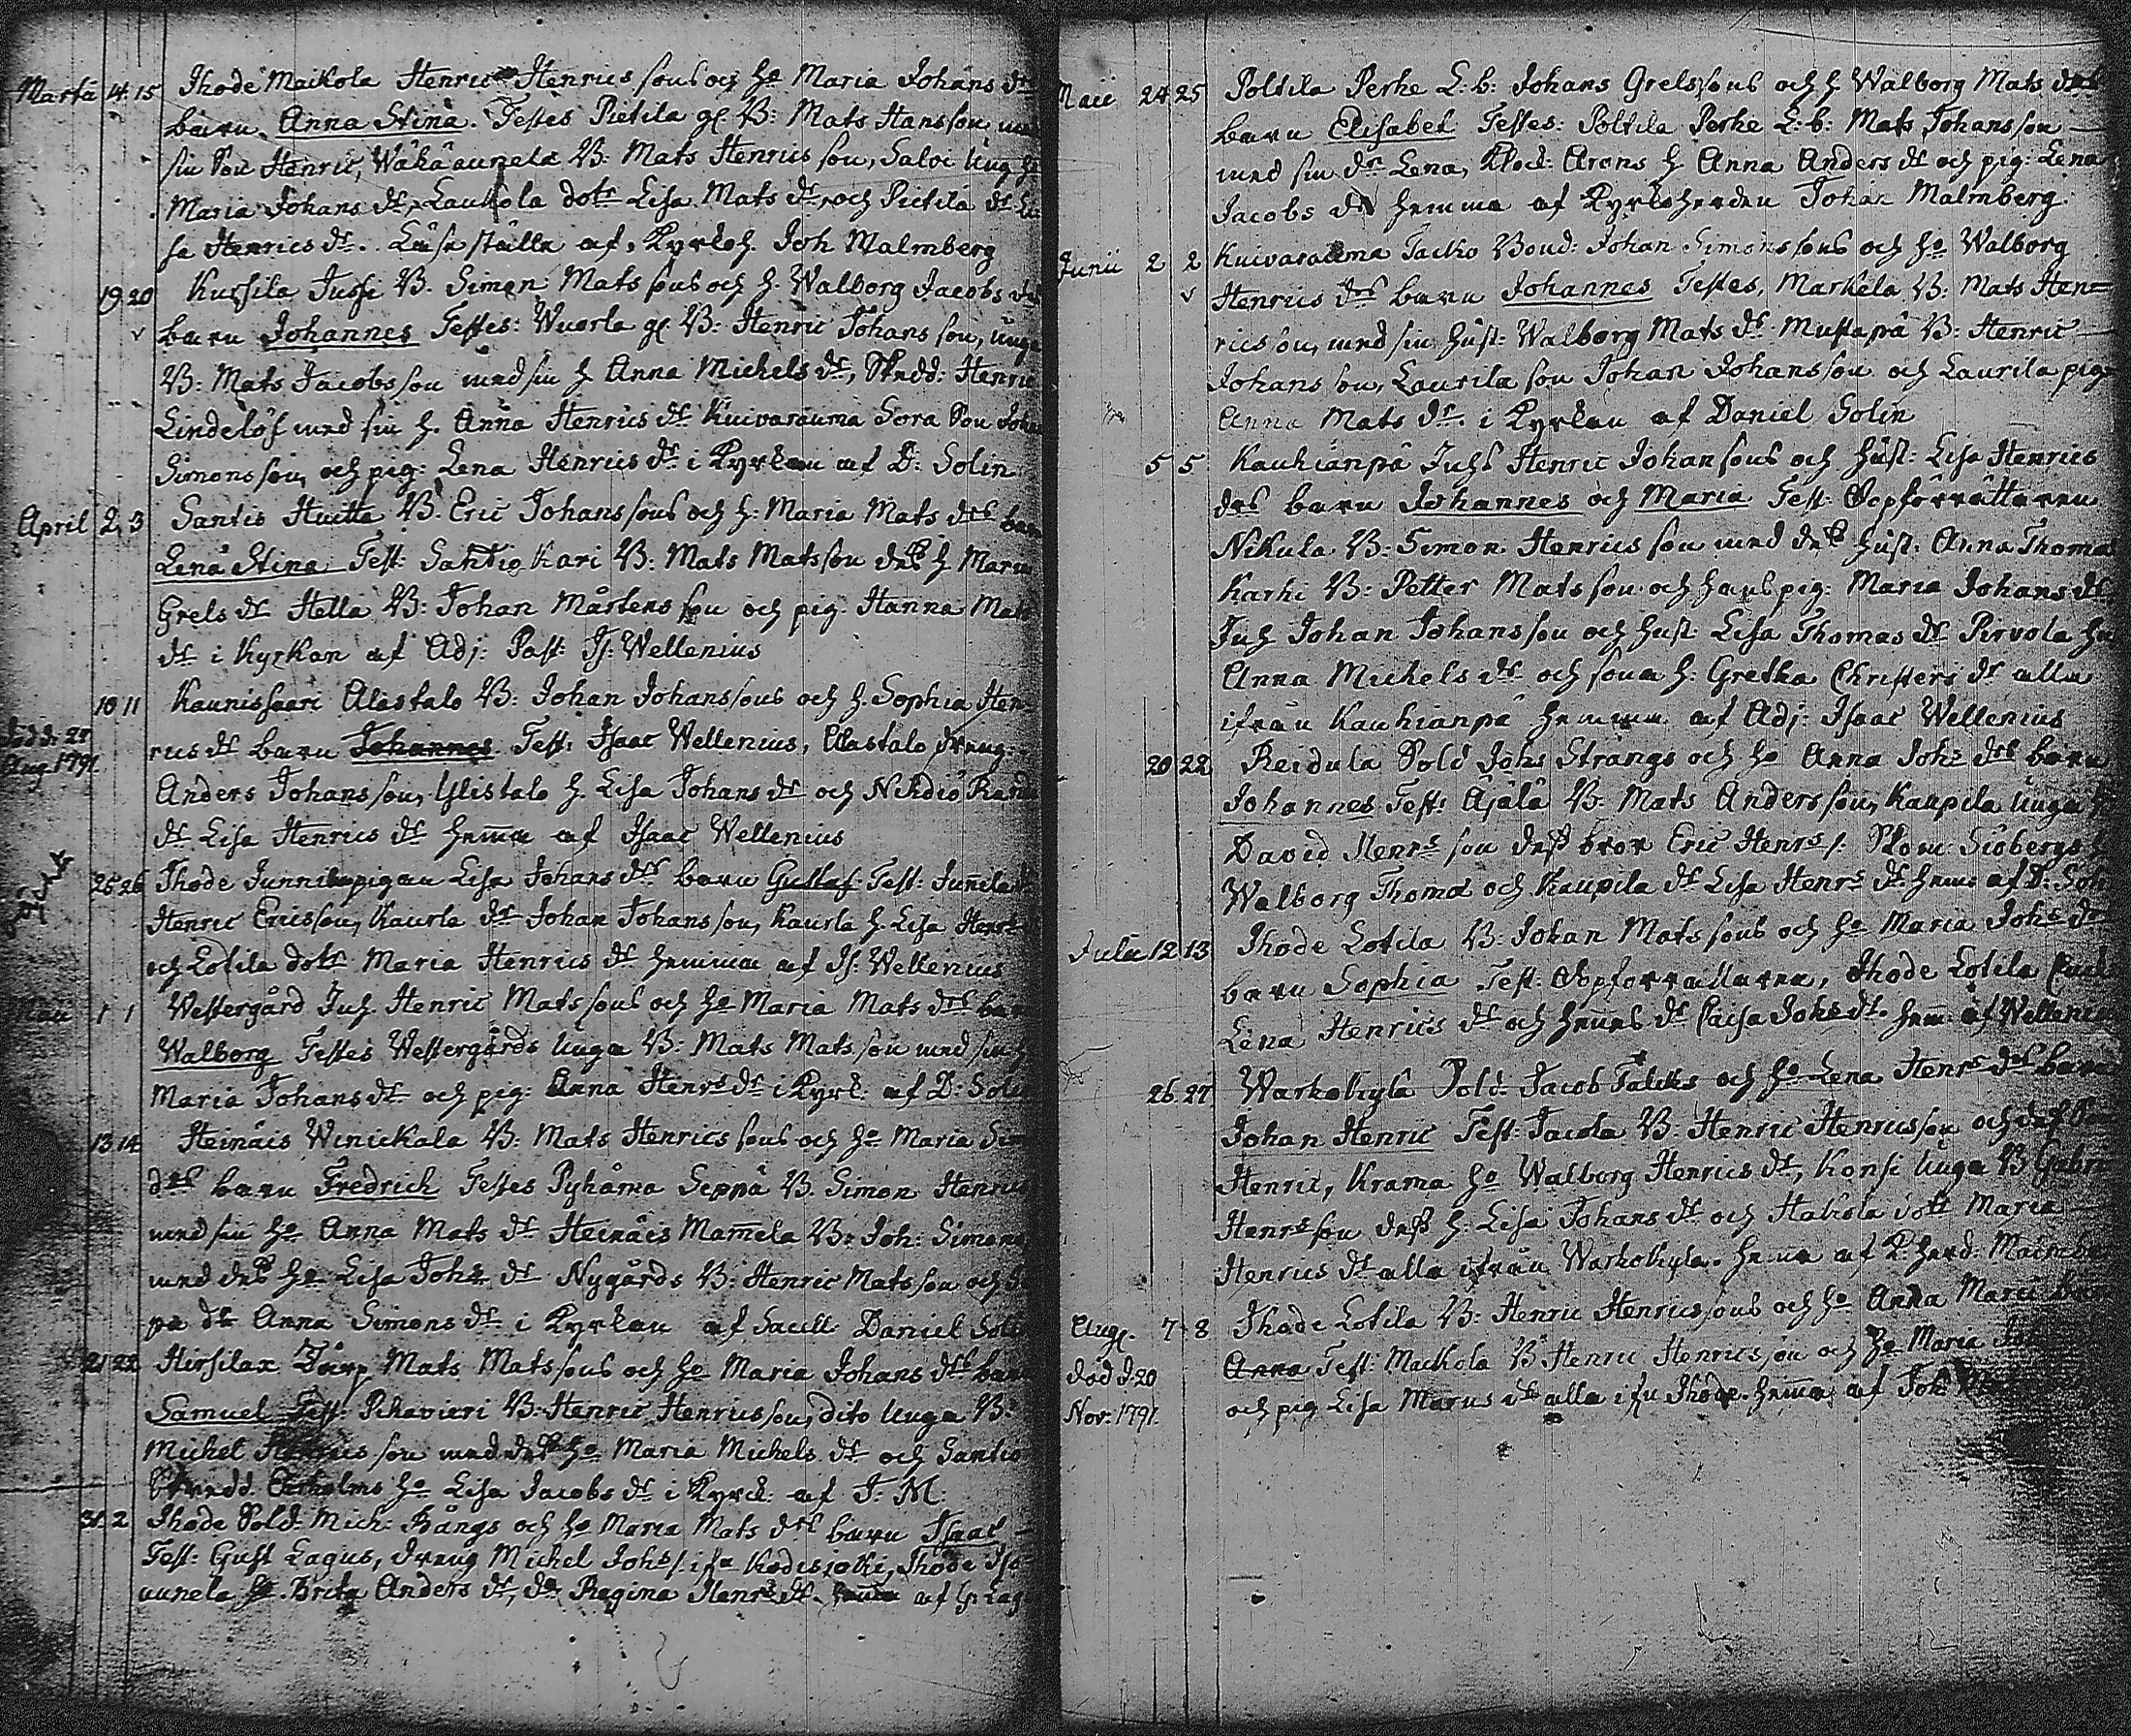 Martii 14. 15 Ihode Maikola Henric Henrics sons och ho Maria Johans dr
barn Anna Stina. Testes Pietila gl. B: Mats Hansson med
sin son Henric, Wähäaunela B: Mats Henrics son, Saloi ung
Maria Johans dr, Laukola dotr Lisa Mats dr och Pietila dr Li
sa Henrics dr. Läseställe af Kyrkoh. Joh Malmberg
19 20 Kursila Jussi B. Simon Mats sons och h. Walborg Jacobs drs
v barn Johannes Testes: Wuorla gl. B: Henric Johans son, unga
B: Mats Jacobs son med sin h Anna Michels dr, Skrädd: Henric
Lindelöf med sin h. Anna Henrics dr Kuivarauma Sora Son Johan
Simons son, och pig: Lena Henrics dr i Kyrkan af D: Solin
April 2. 3 Santio Huitta B. Eric Johans sons och h: Maria Mats drs barn
Lena Stina Test: Santio Kari B: Mats Matsson dess h Maria
Grels dr Hella B: Johan Mårtens son och pig: Hanna Mats
dr i Kyrkan af Adj: Past: Is: Wellenius
10 11 Kaunissaari Alastalo B: Johan Johans sons och h. Sophia Hen
död d: 28 rics dr barn Johannes Test: Isaac Wellenius, Alastalo dräng
Aug. 1791 Anders Johans son, Ylistalo h. Lisa Johans dr och Nihdiö
dr Lisa Henrics dr hemma af Isaac Wellenius
25 26 Ihode Junnila pigan Lisa Johans drs barn Gustaf Test: Junnila
Henric Ericsson, Kaurla dr Johan Johans son, Kaurla h. Lisa Henrs
och Lotila dotr Maria Henrics dr hemma af Is: Wellenius
Maii 1 1 Westergård Inh. Henric Mats sons och ho Maria Mats drs barn
Walborg Testes Westergårds unga B: Mats Mats son med sin h
Maria Johans dr och pig: Anna Henrs dr i Kyrk: af D: Solin
13 14 Heinäis Winickala B: Mats Henrics sons och ho Maria
drs barn Fredrich Testes Pyhäma Seppä B. Simon Henrics
med sin ho Anna Mats dr Heinäis Mamela B: Joh: Simons
med dess ho Lisa Johs dr Nygårds B: Henric Matsson och
pa dr Anna Simons dr i Kyrkan af Sacell: Daniel Solin
21 22 Hirsilax Torp Mats Mats sons och ho Maria Johans drs barn
Samuel Test: Pihavieri B: Henric Henrics son, dito unga B:
Michel Henrics son med dess ho Maria Michels dr och Santio
Skrädd. ho Lisa Jacobs dr i Kyrck: af J: M:
31. 2 Ihode Sold: Mich: Bångs och ho Maria Mats drs barn Isaac
Test: Gust Lagus, dräng Michel Johs s. ifr Kodisjoki, Ihode Iso
aunela ho. Brita Anders dr, dr Regina Henrs dr. hemma af G: Lag
Maii 24 25 Poltila Perhe L: b: Johans Grelssons och h Walborg Mats drs
barn Elisabet Testes: Poltila Perhe L: b: Mats Johansson
med sin dr Lena, Klock: Arons h Anna Anders dr och pig: Lena
Jacobs dr hemma af Kyrkoherden Johan Malmberg
Junii 2 2 Kuivarauma Jacko Bond: Johan Simons sons och ho Walborg
v Henrics drs barn Johannes Testes, Markela B: Mats Hen=
rics son, med sin hust: Walborg Mats dr Mustapä B: Henric
Johans son, Laurila son Johan Johansson och Laurila pig
Anna Mats dr. i Kyrkan af Daniel Solin
5 5 Kauhianpä Inhs Henric Johan sons och hust: Lisa Henrics
drs barn Johannes och Maria Test: Dopförrättaren
Nikula B: Simon Henrics son med dess hust: Anna Thomas
Karhi B: Petter Mats son och hans pig: Maria Johans dr
Inh Johan Johans son och hust: Lisa Thomas dr Pirvola
Anna Michels dr och sona h: Gretha Christers dr alla
ifrån Kauhianpä hemma af Adj: Isaac Wellenius
20 22 Reidula Sold Johs Strångs och ho Anna Johs drs barn
Johannes Test: Äjälä B: Mats Anders son, Kaupila unga
David Henrs son dess bror Eric Henrs s. Skom: Siöbergs
Walborg Thomæ och Kaupila dr Lisa Henrs dr. hem: af D: Sol
Julii 12 13 Ihode Lotila B: Johan Mats sons och ho Maria Johs dr
barn Sophia Test: Dopförrättaren, Ihode Lotila
Lena Henrics dr och hennes dr Caisa Johs dr. hem: af Wellenius
26 27 Warhokylä Sold: Jacob Falcks och ho Lena Henrs drs barn
Johan Henric Test: Jacola B: Henric Henricsson och dess
Henric, Krama ho Walborg Henrics dr, Konsi unga B Gabri
Henrs son dess h: Lisa Johans dr och Hakola dott Maria
Henrics dr alla ifrån Warhokylä. hemma af K: herd: Malmbe
Aug. 7 8 Ihode Lotila B: Henric Henrics sons och ho Anna Marci
död d 20 Anna Test: Maikola B Henric Henrics son och ho Maria
Nov: 1791. och pig Lisa Marcus dr alla ifr Ihode. hemma af Joh